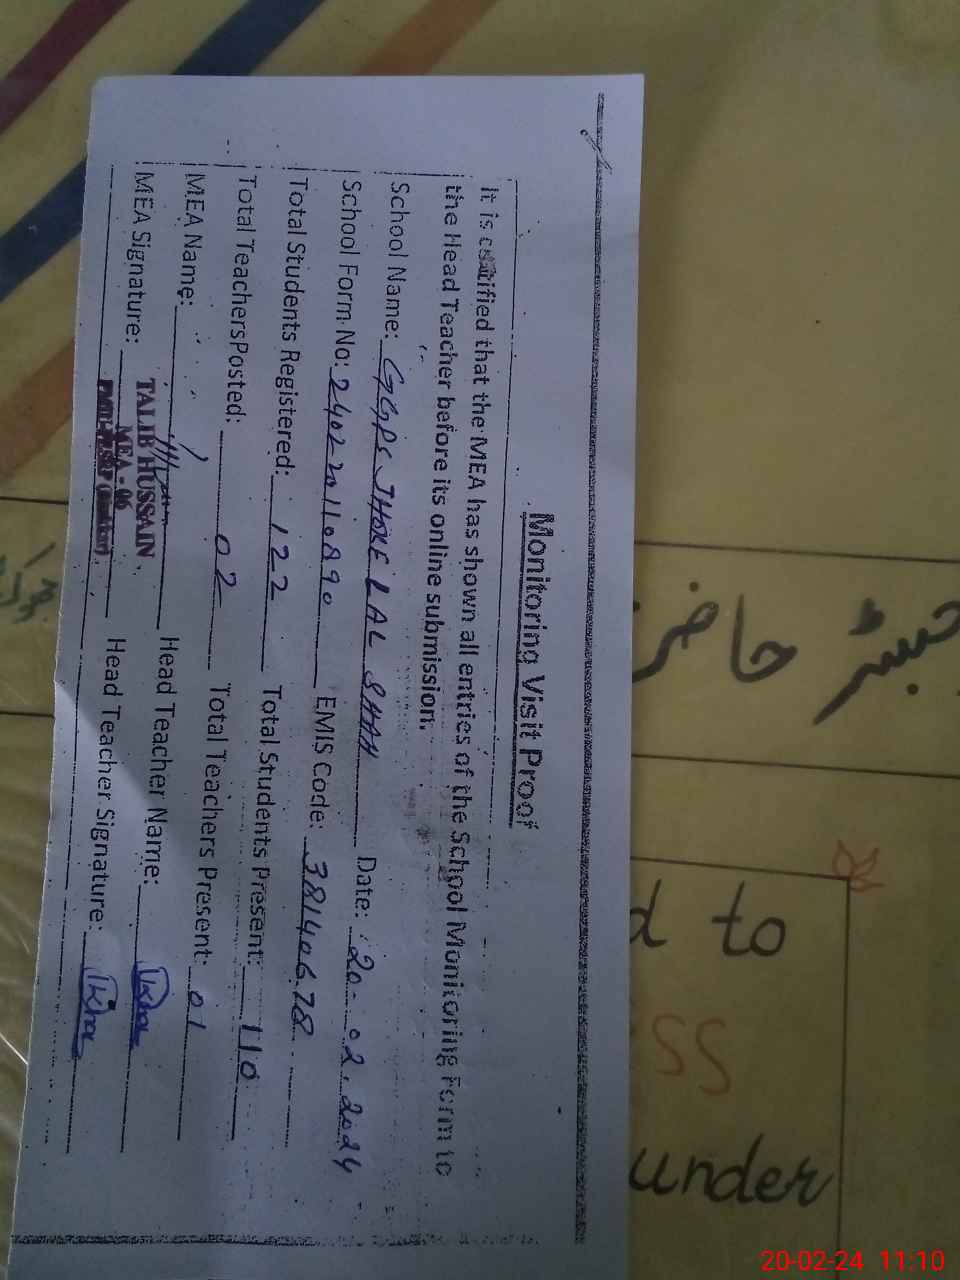 Monitoring Visit Proof
It is certified that the MEA has shown all entries of the School Monitoring Form to
the Head Teacher before its online submission.
School Name: GGPS JHOKE LAL SHAH Date: 20-02-2024
School Form No: 240220110890 EMIS Code: 38140678
Total Students Registered: 122 Total Students Present: 110
Total Teachers Posted: 02 Total Teachers Present: 01
MEA Name: Head Teacher Name:
MEA Signature: Head Teacher Signature:
TALIB HUSSAIN
MEA - 06
حاضر
d to
SS
under
20-02-24 11:10